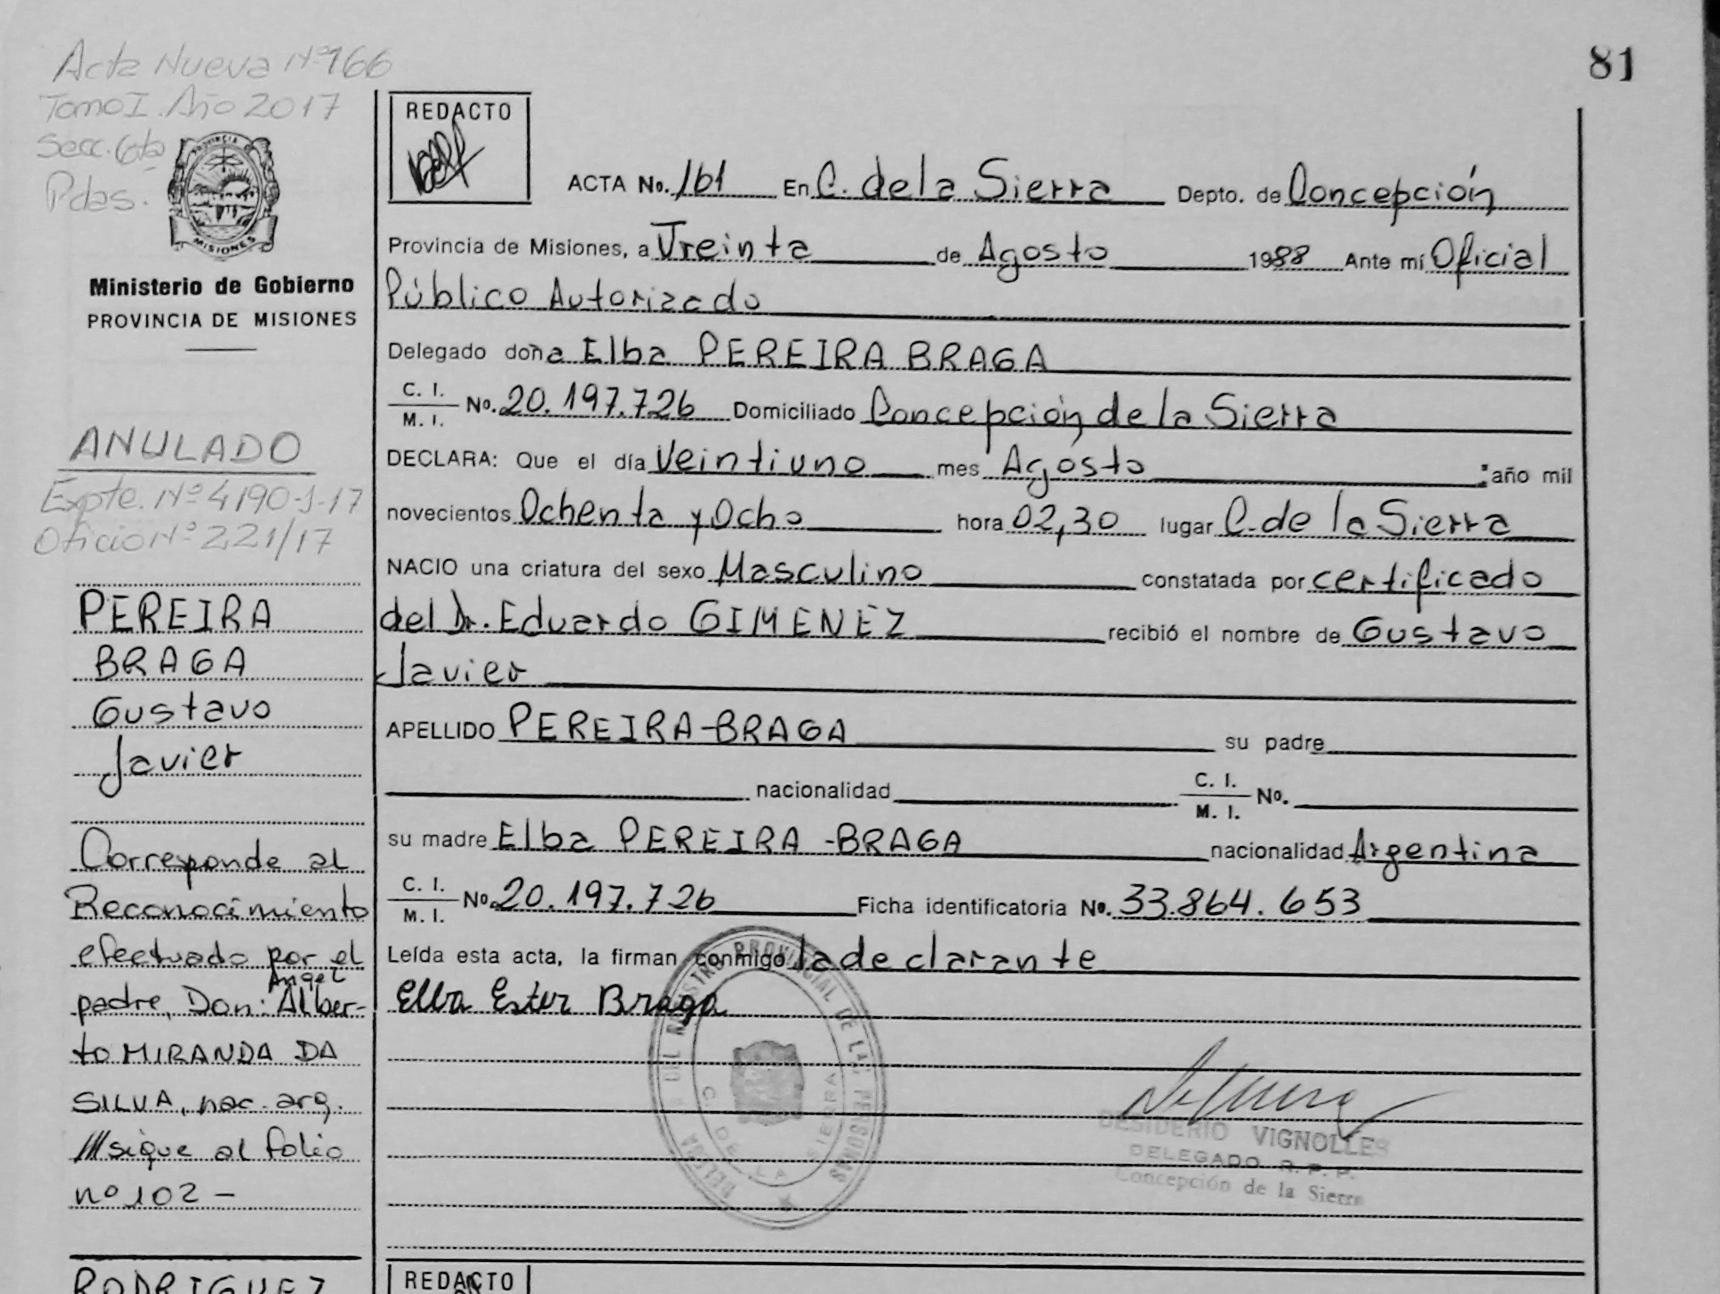 81
Acta Nueva Nº 166
Tomo I. Año 2017
Secc. 6ta
Pdas.
PROVINCIA DE
MISIONES
Ministerio de Gobierno
PROVINCIA DE MISIONES
ANULADO
Expte. Nº 4190-J-17
Oficio Nº 221/17
PEREIRA
BRAGA
Gustavo
Javier
Corresponde al
Reconocimiento
efectuado por el
Angel
padre, Don: Alber-
to MIRANDA DA
SILVA, nac. arg.
///sigue al folio
nº 102 -
RODRIGUEZ
REDACTO
ACTA No. 161 En C. de la Sierra Depto. de Concepción
Provincia de Misiones, a Treinta de Agosto 1988 Ante mí Oficial
Público Autorizado
Delegado doña Elba PEREIRA BRAGA
C. I. / M. I. No. 20.197.726 Domiciliado Concepción de la Sierra
DECLARA: Que el día Veintiuno mes Agosto ; año mil
novecientos Ochenta y Ocho hora 02,30 lugar C. de la Sierra
NACIO una criatura del sexo Masculino constatada por certificado
del Dr. Eduardo GIMENEZ recibió el nombre de Gustavo
Javier
APELLIDO PEREIRA-BRAGA su padre
nacionalidad C. I. / M. I. No.
su madre Elba PEREIRA-BRAGA nacionalidad Argentina
C. I. / M. I. No. 20.197.726 Ficha identificatoria No. 33.864.653
Leída esta acta, la firman conmigo la declarante
Elba Ester Braga
DEL REGISTRO PROVINCIAL DE LAS PERSONAS
C. DE LA SIERRA
DESIDERIO VIGNOLLES
DELEGADO R. P. P.
Concepción de la Sierra
REDACTO